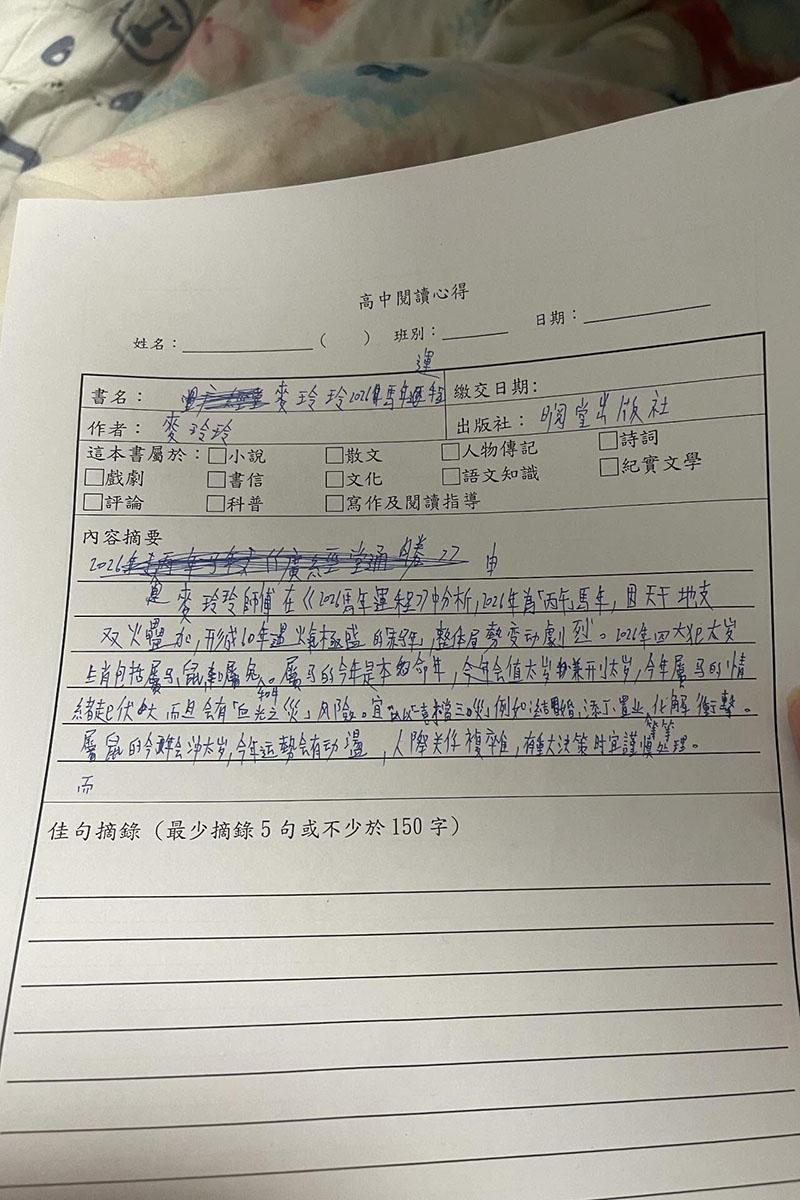 高中閱讀心得
姓名：（ ） 班別： 日期：
書名： 麥玲玲2026馬年運程 繳交日期:
作者： 麥玲玲 出版社： 明窗出版社
這本書屬於：□小說 □散文 □人物傳記 □詩詞
□戲劇 □書信 □文化 □語文知識 □紀實文學
□評論 □科普 □寫作及閱讀指導
內容摘要
2026年
麥玲玲師傅在《2026馬年運程》中分析,2026年為「丙午馬年,因天干地支
双火疊加,形成60年週火氣極盛的,整体局勢变动劇烈。2026年四大犯太岁
生肖包括屬马、鼠和屬兔。屬马的今年是本命年,今年会值太岁兼刑太岁,今年屬马的情
緒起伏大而且会有「血光之災」风险。宜以「喜擋三災」例如結婚,添丁、置业,化解衝擊。
屬鼠的今年会冲太岁,今年运勢会有动盪,人際关係複雜,有重大决策时宜謹慎处理。
等等
而
佳句摘錄（最少摘錄5句或不少於150字）